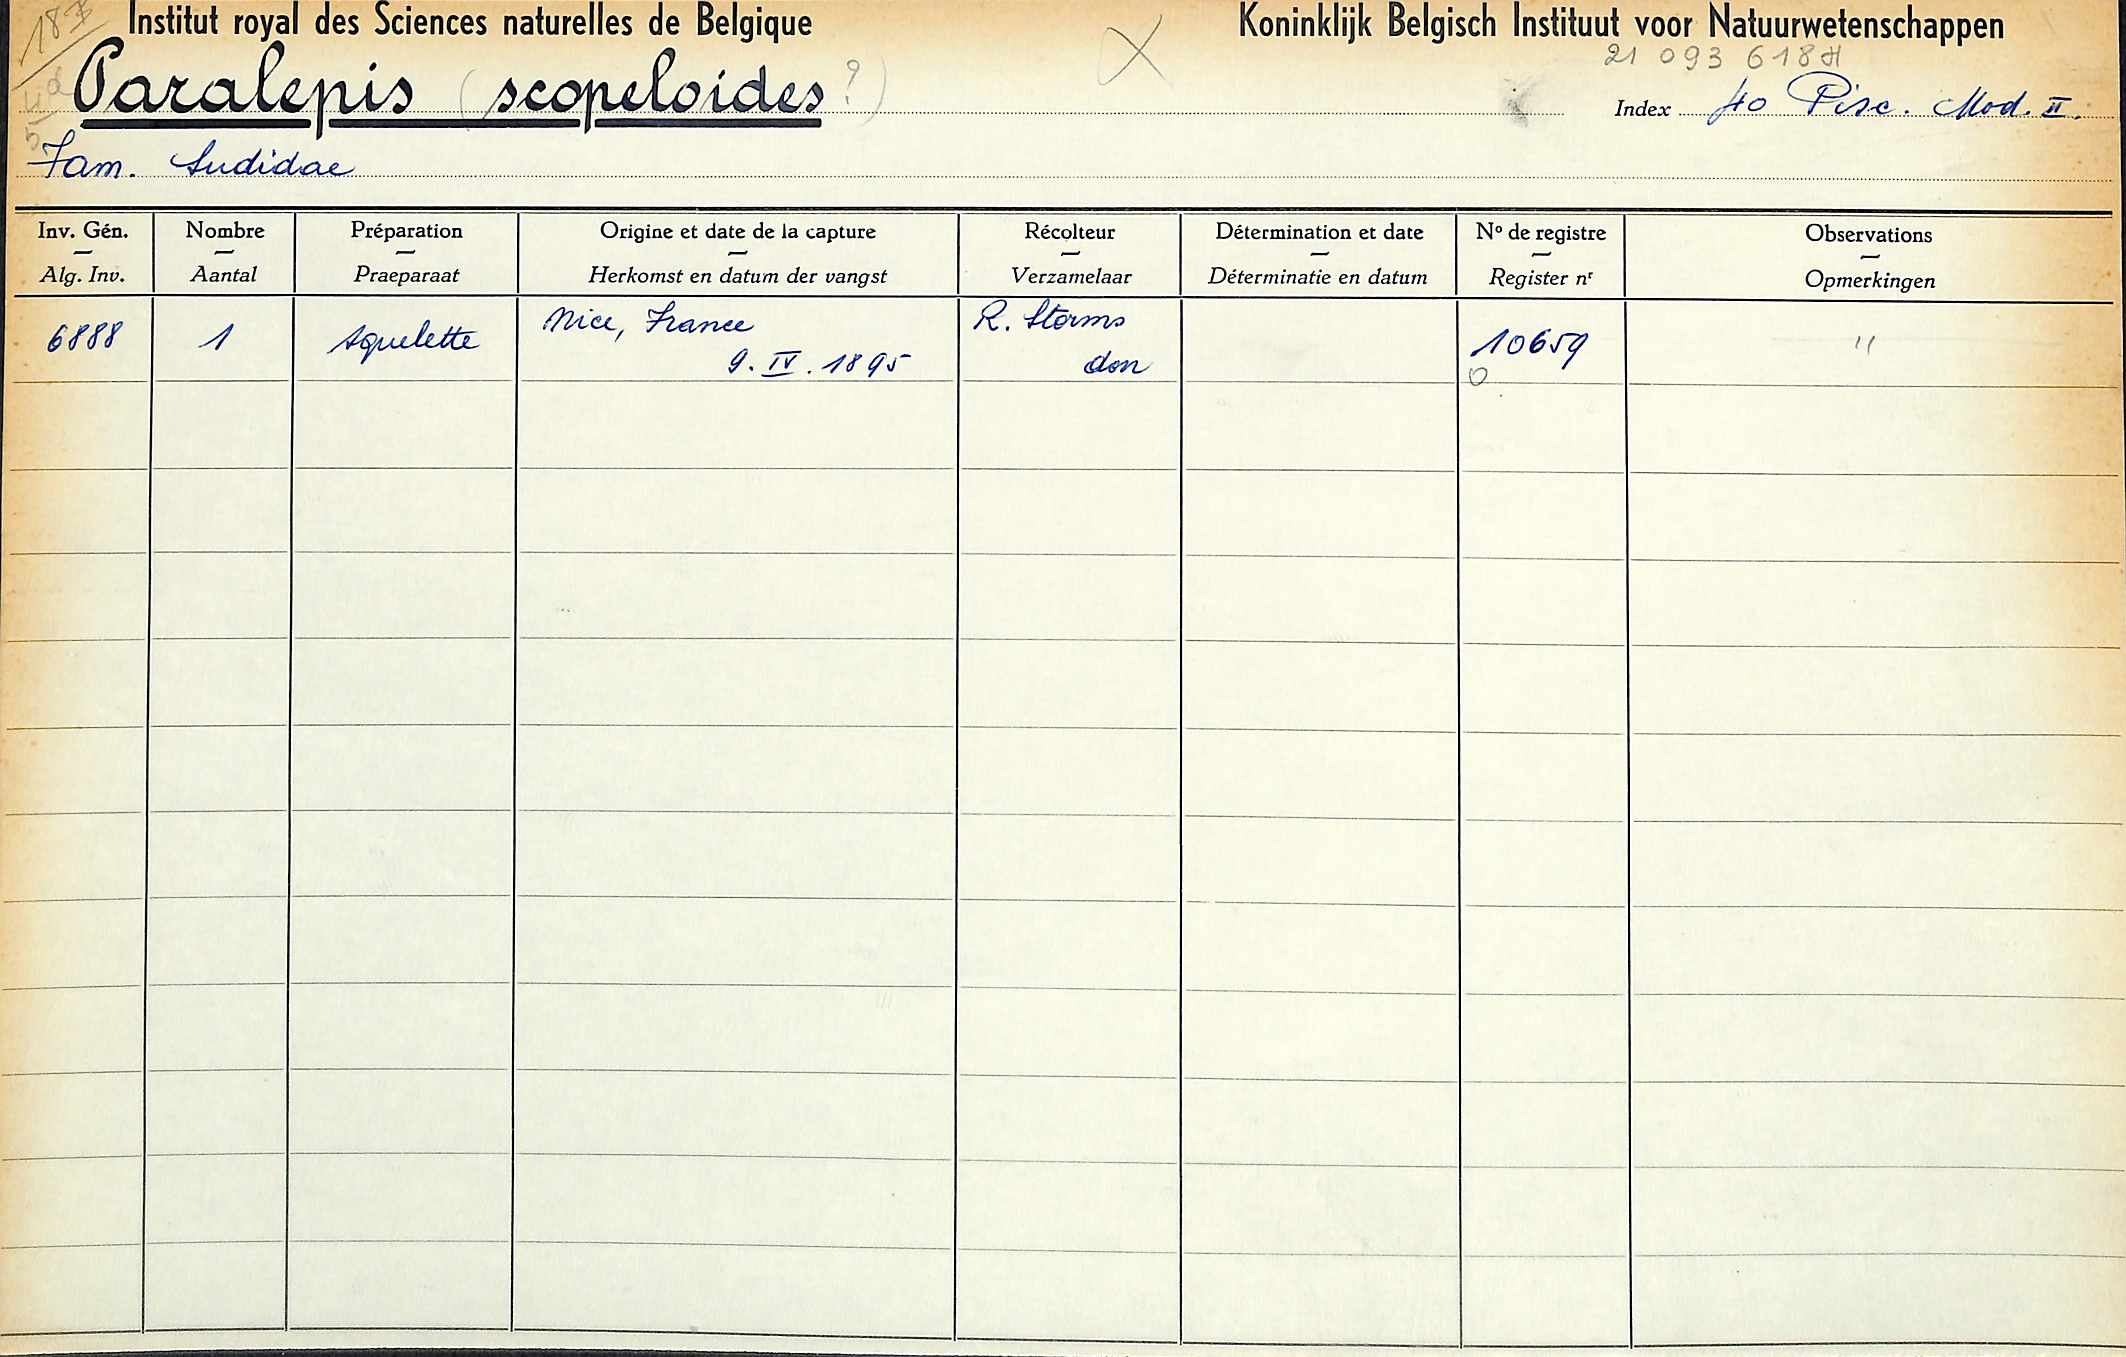 Institut royal des Sciences naturelles de Belgique
Koninklijk Belgisch Instituut voor Natuurwetenschappen
21 093 618 H
Paralepis (scopeloides ?)
Index 40 Pisc. Mod. II.
Fam. Sudidae
Inv. Gén. — Alg. Inv.
Nombre — Aantal
Préparation — Praeparaat
Origine et date de la capture — Herkomst en datum der vangst
Récolteur — Verzamelaar
Détermination et date — Déterminatie en datum
Nº de registre — Register nʳ
Observations — Opmerkingen
6888
1
squelette
Nice, France
9. IV. 1895
R. Storms
don
10659
0
"